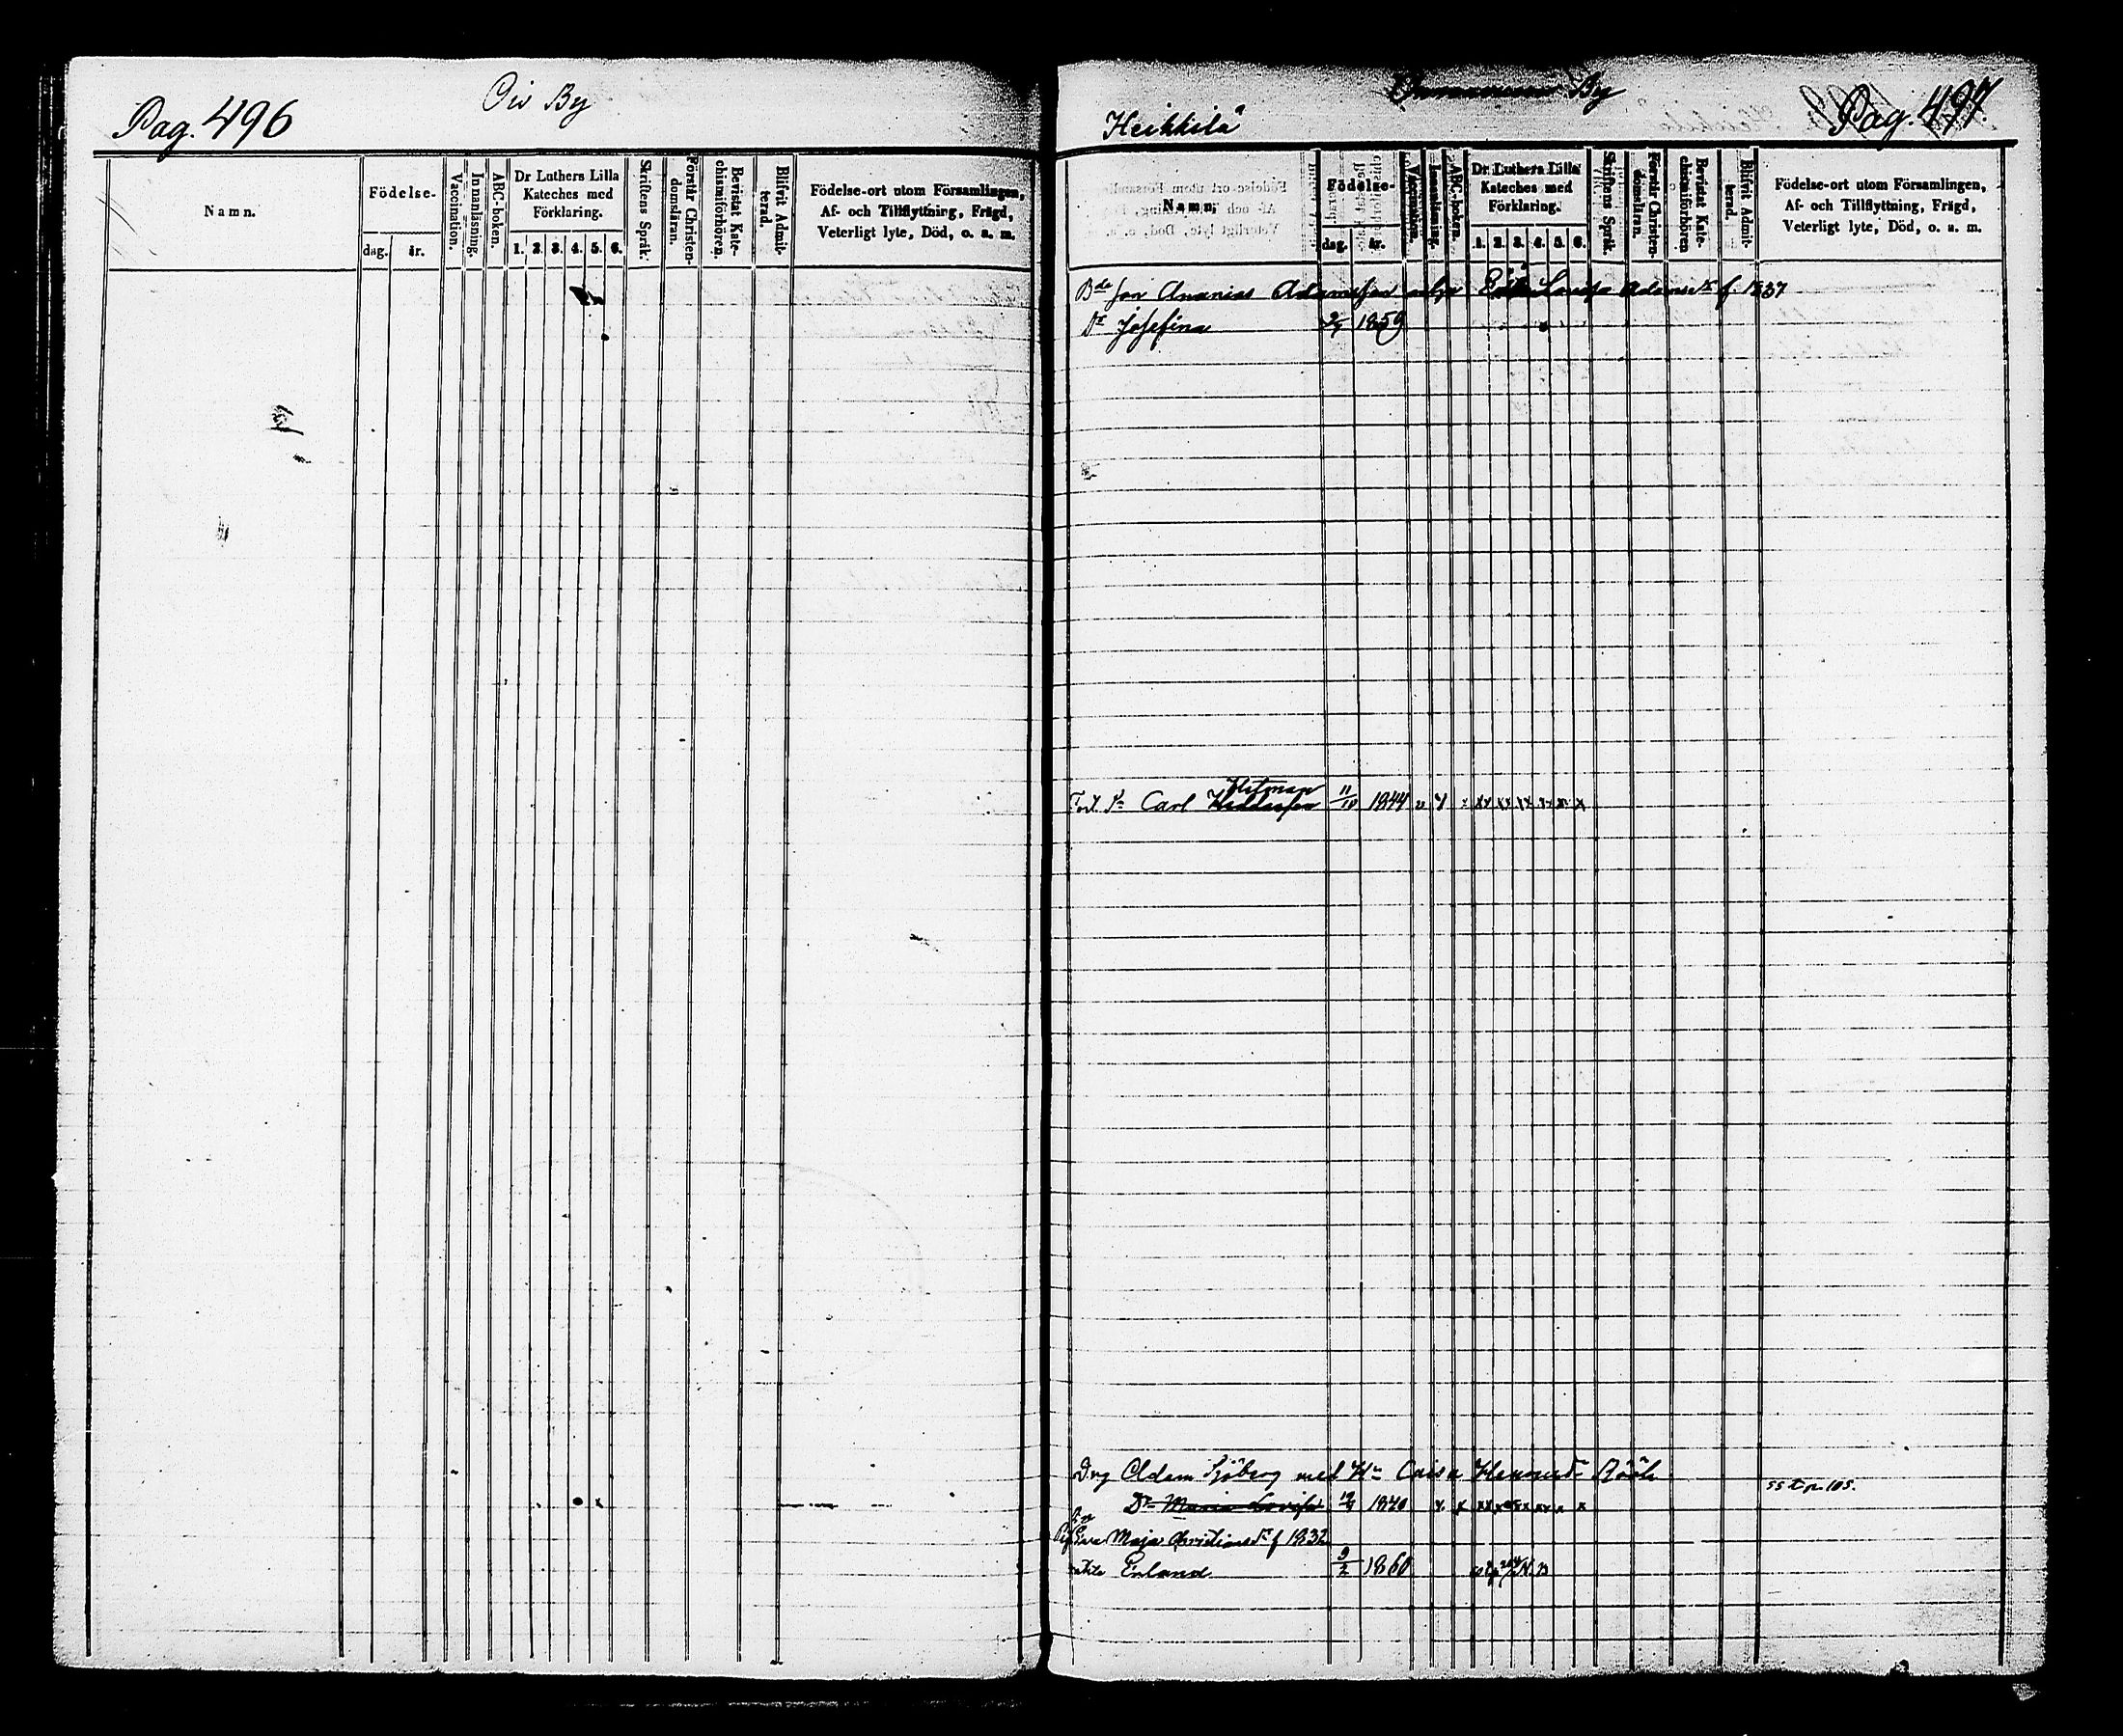 Pag. 496
Oiv By
Namn.
Födelse-
dag.
år.
Vaccination.
Innanläsning.
ABC-boken.
Dr Luthers Lilla
Kateches med
Förklaring.
1. 2. 3. 4. 5. 6.
Skriftens Språk.
Förstår Christen-
domsläran.
Bevistat Kate-
chismiförhören.
Blifvit Admit-
terad.
Födelse-ort utom Församlingen,
Af- och Tillflyttning, Frägd,
Veterligt lyte, Död, o. s. m.
Heikkilä
By
Pag. 497
Namn.
Födelse-
dag.
år.
Vaccination.
Innanläsning.
ABC-boken.
Dr Luthers Lilla
Kateches med
Förklaring.
1. 2. 3. 4. 5. 6.
Skriftens Språk.
Förstår Christen-
domsläran.
Bevistat Kate-
chismiförhören
Blifvit Admit-
terad.
Födelse-ort utom Församlingen,
Af- och Tillflyttning, Frägd,
Veterligt lyte, Död, o. s. m.
Bde Son Ananias Adamsson Lovisa Adamsdr f 1837
Dr Josefina 1859
Carl 11/10 1844
Adam Sjöberg med Hu Caisa
Dr Maria Lovisa 1840
Maja Christiansdr f 1832
Erland 9/2 1860